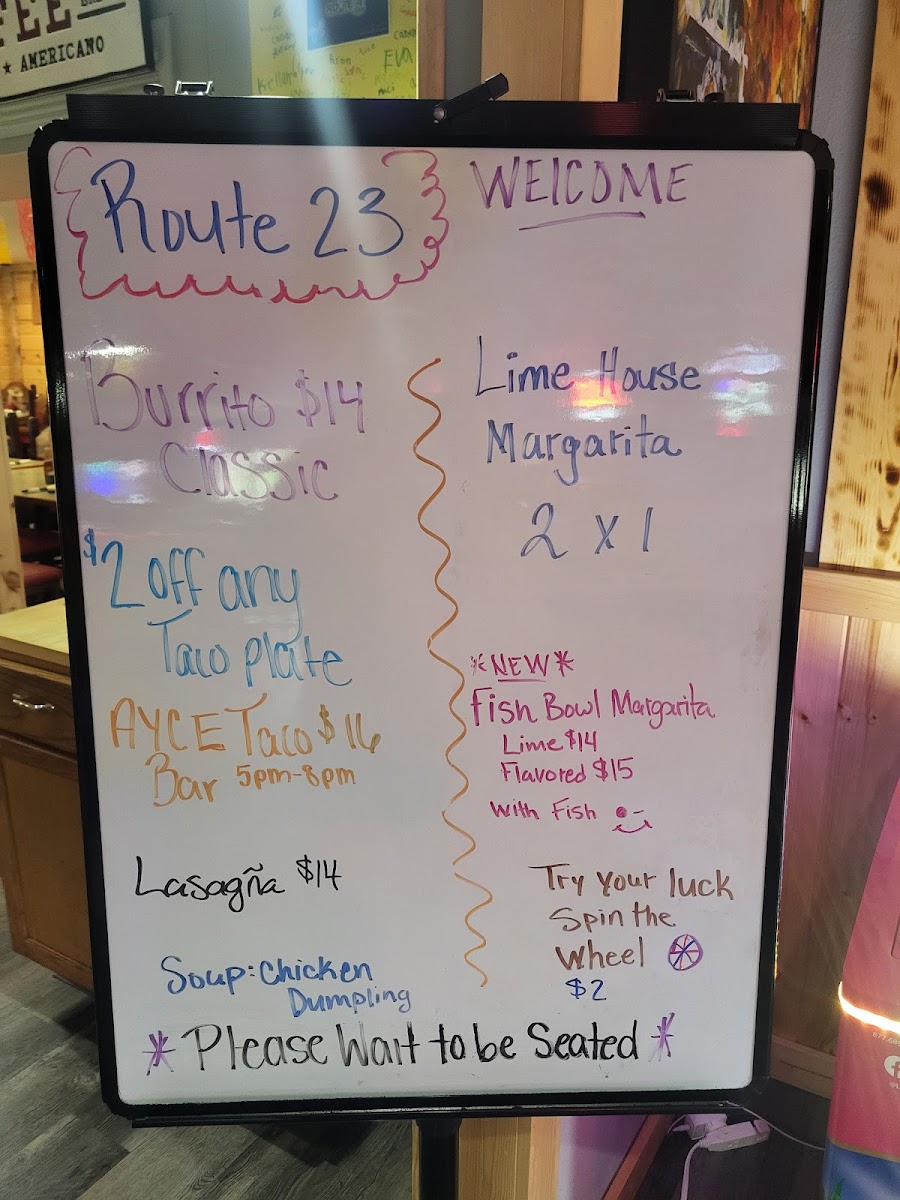 ★ AMERICANO
EVA
Route 23
WELCOME
Burrito $14
Classic
$2 off any
Taco plate
AYCE Taco $16
Bar 5pm-8pm
Lasagña $14
Soup: Chicken
Dumpling
Lime House
Margarita
2 x 1
*NEW*
Fish Bowl Margarita
Lime $14
Flavored $15
With Fish
Try your luck
Spin the
Wheel
$2
* Please Wait to be Seated *